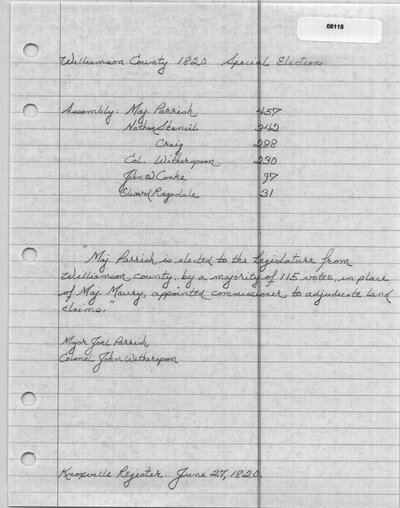 08118
Williamson County 1820 Special Election
Assembly: Maj. Parrish 457
Nathan Stancil 342
Craig 288
Col. Witherspoon 230
John W Cooke 97
Edward Ragsdale 31
"Maj. Parrish is elected to the Legislature from
Williamson county, by a majority of 115 votes, in place
of Maj. Maury, appointed commissioner to adjudicate land
claims."
Major Joel Parrish
Colonel John Witherspoon
Knoxville Register. June 27, 1820.